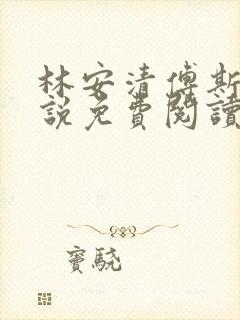 林安清傅斯
說免費閱讀
竇驍